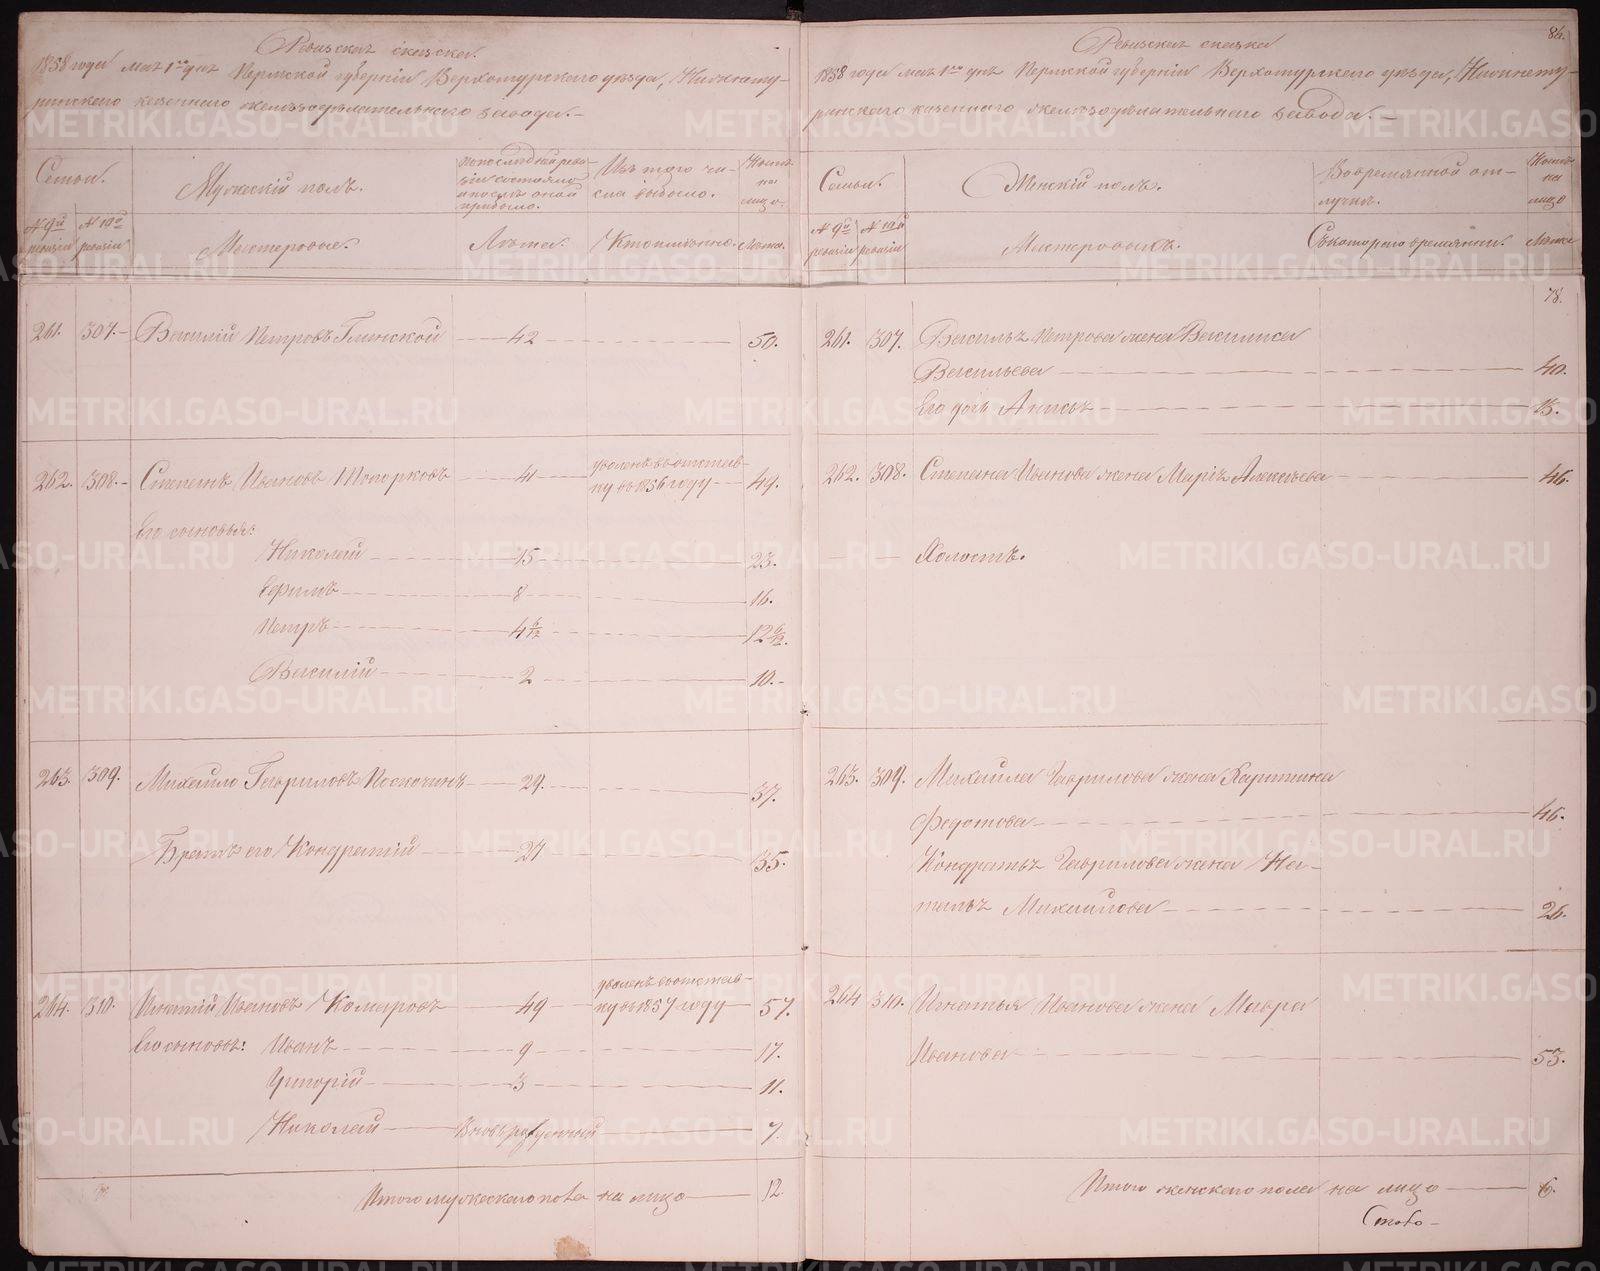 Ревизская сказка.
1858 года мая 1го дня Пермской губернии Верхотурского уезда, Нижнету-
ринского казеннаго железоделательнаго завода.-
Семьи.
Мужескій полъ.
По последней реви-
зіи состояло
и после оной
прибыло.
Изъ того чи-
сла выбыло.
Ныне
на
лицо.
№ 9й ревизіи
№ 10й ревизіи
Мастеровые.
Лета.
Когда именно.
Лета.
261. 307.- Василій Петровъ Глинской 42 50.
262. 308.- Степанъ Ивановъ Топорковъ 41 уволенъ въ отстав-
ку въ 1856 году 49.
Его сыновья:
Николай 15 23.
Ефимъ 8 16.
Петръ 4 6/12 12 6/12.
Василій 2 10.-
263. 309. Михайло Гавриловъ Поскочинъ 29. 37.
Братъ его Кондратій 27 35.
264. 310. Игнатій Ивановъ Комаровъ 49 уволенъ въ отстав-
ку въ 1857 году 57.
Его сыновья: Иванъ 9 17.
Григорій 3 11.
Николай Вновь рожденный 7.
Итого мужескаго пола на лицо 12.
86.
Ревизская сказка
1858 года мая 1го дня Пермской губерніи Верхотурского уезда, Нижнету-
ринского казеннаго железоделательнаго завода.-
Семьи.
Женскій полъ.
Во временной от-
лучке.
Ныне
на
лицо
№ 9й ревизіи
№ 10й ревизіи
Мастеровыхъ.
Съ котораго времени.
Лета
78.
261. 307. Василья Петрова жена Василиса
Васильева 40.
Его дочь Анисья 15.
262. 308. Степана Иванова жена Марья Алексеева 46.
Холостъ.
263. 309. Михайла Гаврилова жена Харитина
Федотова 46.
Кондратья Гаврилова жена На-
талья Михайлова 26.
264 310. Игнатья Иванова жена Мавра
Иванова 53.
Итого женскаго пола на лицо 6.
METRIKI.GASO-URAL.RU